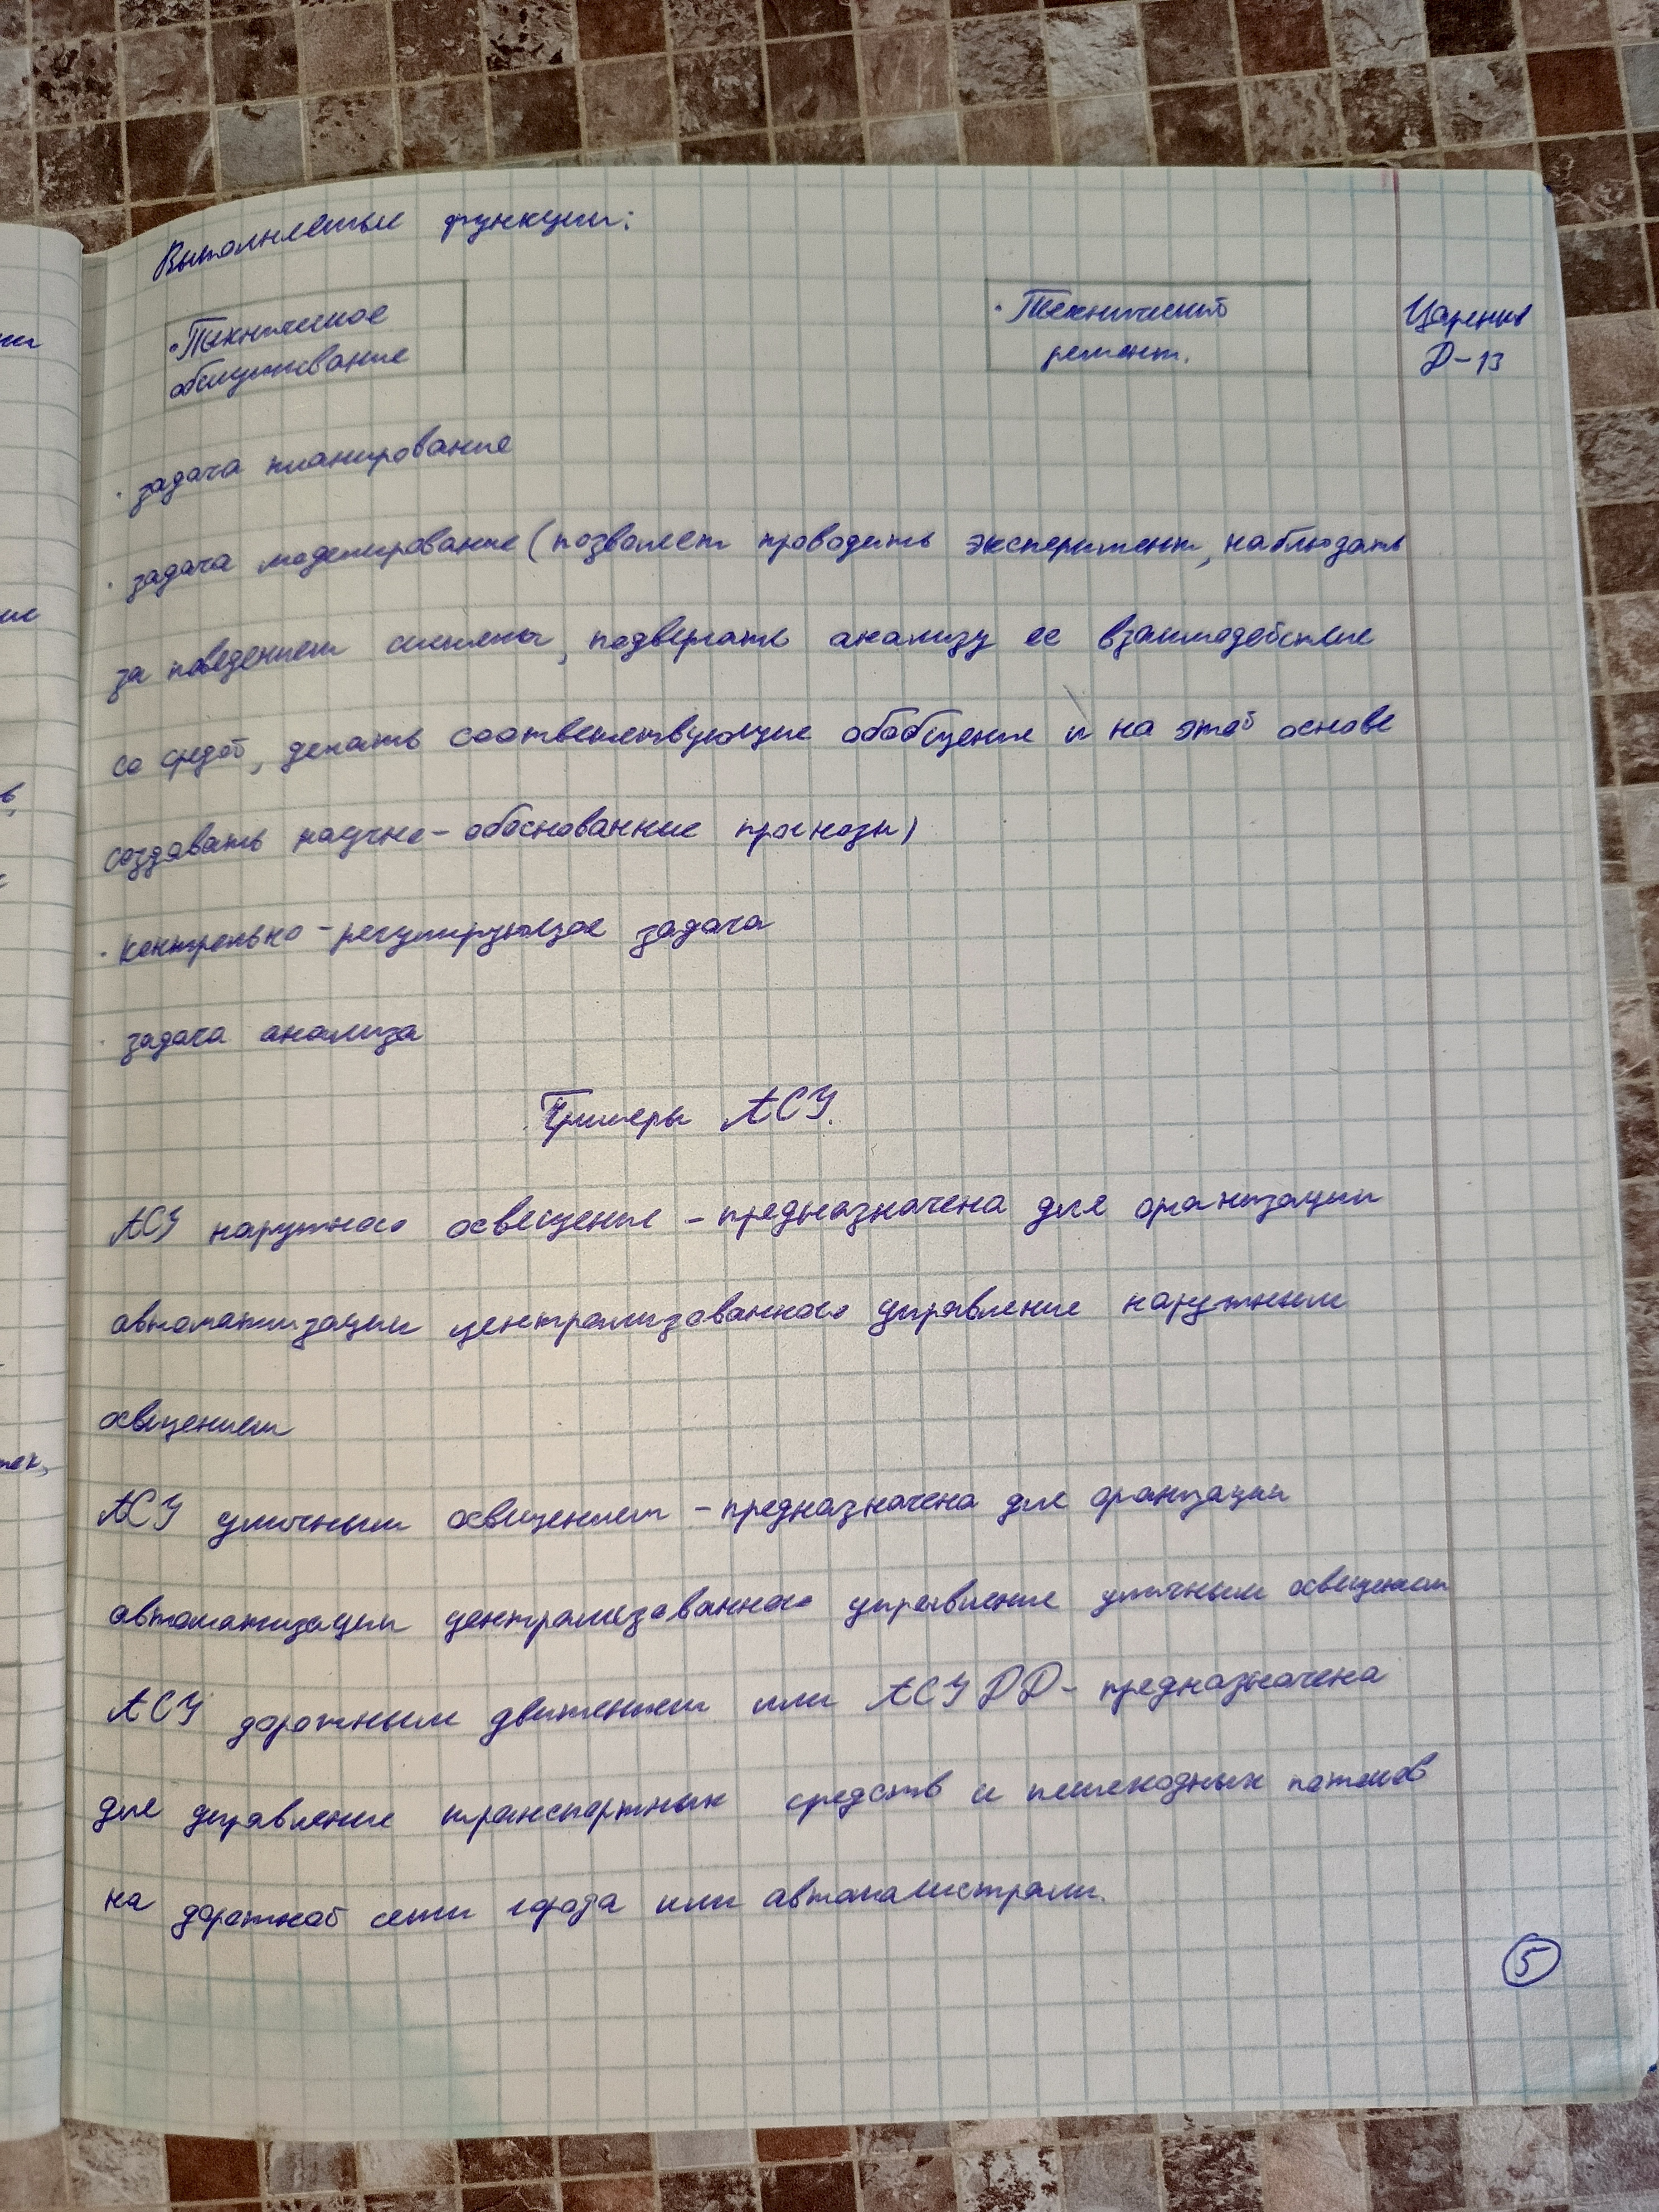 Выполняемые функции:
• Техническое
обслуживание
• Технический
ремонт.
Царенко
Д-13
• задача планирование
• задача моделирование (позволяет проводить эксперимент, наблюдать
за поведением системы, подвергать анализу ее взаимодействие
со средой, делать соответствующие обобщение и на этой основе
создавать научно-обоснованние прогнозы)
• контрольно-регулирующая задача
• задача анализа
Примеры АСУ.
АСУ наружного освещение - предназначена для организации
автоматизации централизованного управление наружным
освещением
АСУ уличным освещением - предназначена для организации
автоматизации централизованного управление уличным освещением
АСУ дорожным движением или АСУ ДД - предназначена
для управление транспортных средств и пешеходных потоков
на дорожной сети города или автомагистрали.
5
ие
в,
тек,